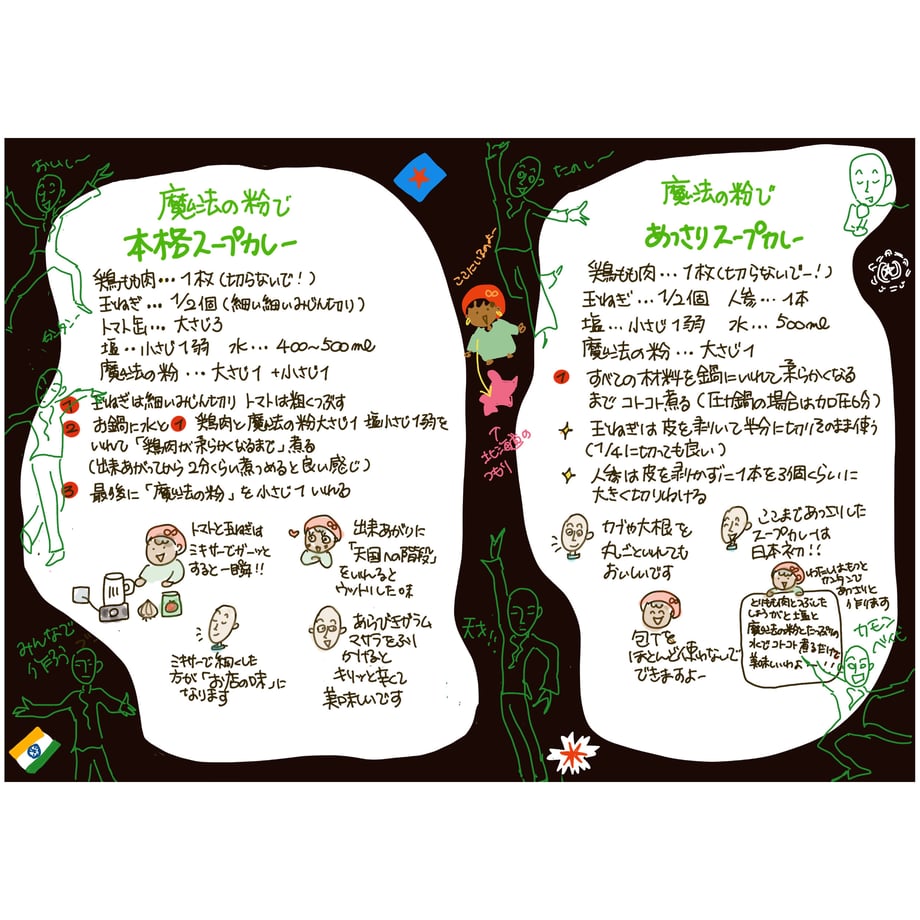 おいしー
カンタンー
魔法の粉で
本格スープカレー
鶏もも肉…1枚(切らないで!)
玉ねぎ…1/2個(細い細いみじん切り)
トマト缶…大さじ3
塩‥小さじ1弱 水…400〜500ml
魔法の粉…大さじ1+小さじ1
1 玉ねぎは細いみじん切り トマトは粗くつぶす
2 お鍋に水と1 鶏肉と魔法の粉大さじ1 塩小さじ1弱を
いれて「鶏肉が柔らかくなるまで」煮る
(出来あがってから2分くらい煮つめると良い感じ)
3 最後に「魔法の粉」を小さじ1いれる
トマトと玉ねぎは
ミキサーでガーッと
すると一瞬!!
出来あがりに
「天国への階段」
をいれると
ウットリした味
ミキサーで細くした
方が「お店の味」に
なります
あらびきガラム
マサラをふり
かけると
キリッと辛くて
美味しいです
みんなで
作ろう
ここにいるのよー
↑
北海道の
つもり
たのしー
魔法の粉で
あっさりスープカレー
鶏もも肉…1枚(切らないでー!)
玉ねぎ…1/2個 人参…1本
塩…小さじ1弱 水…500ml
魔法の粉…大さじ1
1 すべての材料を鍋にいれて柔らかくなる
まで コトコト煮る(圧力鍋の場合は加圧6分)
玉ねぎは皮を剥いて半分に切りそのまま使う
(1/4に切っても良い)
人参は皮を剥かずに1本を3個くらいに
大きく切りわける
カブや大根を
丸ごといれても
おいしいです
ここまであっさりした
スープカレーは
日本初!!
包丁を
ほとんど使わないで
できますよー
わたしはもっと
カンタンで
あっさりと
作ります
とりもも肉とつぶした
しょうがと塩と
魔法の粉とたっぷりの
水でコトコト煮るだけでも
美味しいわよー!!
天才!!
カモン
ベイビ